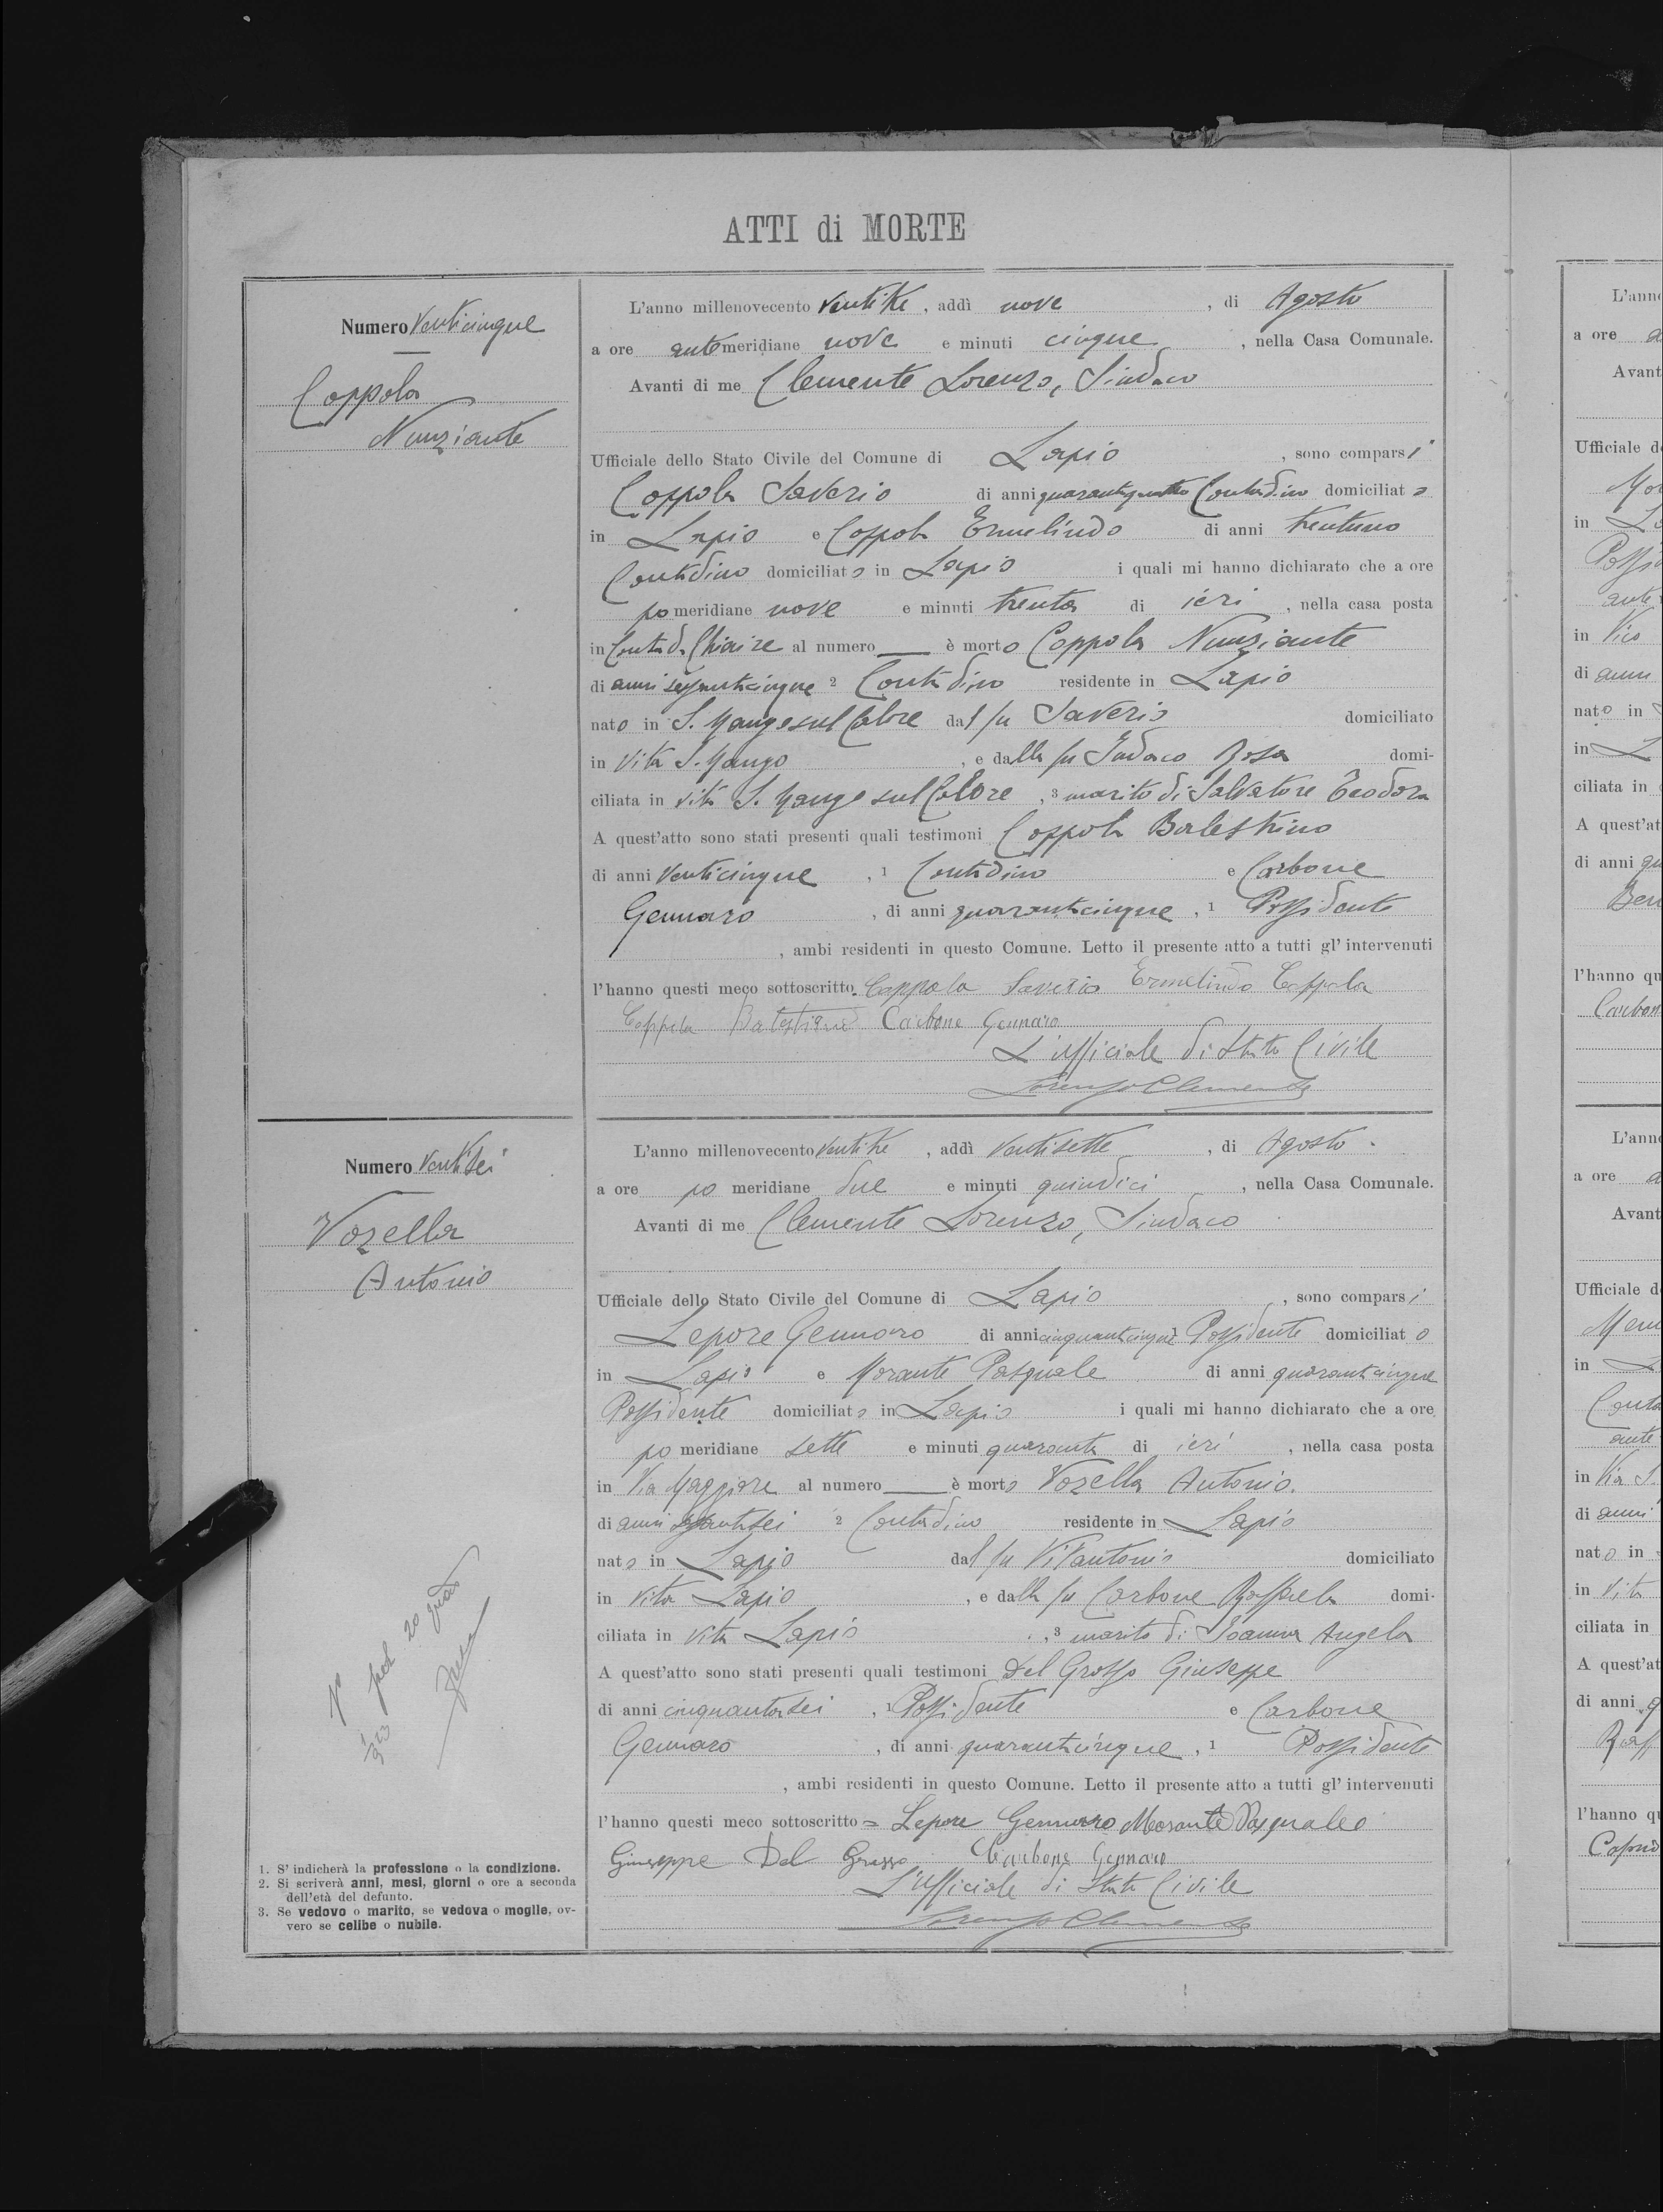 ATTI di MORTE
Numero Venticinque
Coppola
Nunziante
L'anno millenovecento ventitre, addì nove, di Agosto
a ore antemeridiane nove e minuti cinque, nella Casa Comunale.
Avanti di me Clemente Lorenzo, Sindaco
Ufficiale dello Stato Civile del Comune di Lapio, sono comparsi
Coppola Saverio di anni quarantaquattro Contadino domiciliato
in Lapio e Coppola Ermelindo di anni trentuno
Contadino domiciliato in Lapio i quali mi hanno dichiarato che a ore
pomeridiane nove e minuti trenta di ieri, nella casa posta
in Contrada Chiaire al numero — è morto Coppola Nunziante
di anni 2 Contadino residente in Lapio
nato in S. Mango sul Calore dal fu Saverio domiciliato
in vita S. Mango, e dalla fu Rosa domi-
ciliata in vita S. Mango sul Calore, 3 marito di Salvatore Teodora
A quest'atto sono stati presenti quali testimoni Coppola Balestrino
di anni venticinque, 1 Contadino e Carbone
Gennaro, di anni quarantacinque, 1 Possidente
, ambi residenti in questo Comune. Letto il presente atto a tutti gl'intervenuti
l'hanno questi meco sottoscritto. Coppola Saverio Ermelindo Coppola
Coppola Balestrino Carbone Gennaro
L'ufficiale di Stato Civile
Lorenzo Clemente
Numero Ventisei
Vozella
Antonio
L'anno millenovecento ventitre, addì ventisette, di Agosto
a ore pomeridiane due e minuti quindici, nella Casa Comunale.
Avanti di me Clemente Lorenzo, Sindaco
Ufficiale dello Stato Civile del Comune di Lapio, sono comparsi
Lepore Gennaro di anni cinquantacinque Possidente domiciliato
in Lapio e Morante Pasquale di anni quarantacinque
Possidente domiciliato in Lapio i quali mi hanno dichiarato che a ore
pomeridiane sette e minuti quaranta di ieri, nella casa posta
in Via Maggiore al numero — è morto Vozella Antonio.
di anni 2 Contadino residente in Lapio
nato in Lapio dal fu Vitantonio domiciliato
in vita Lapio, e dalla fu Carbone Raffaela domi-
ciliata in vita Lapio, 3 marito di Ioanna Angela
A quest'atto sono stati presenti quali testimoni Del Grosso Giuseppe
di anni cinquantasei, 1 Possidente e Carbone
Gennaro, di anni quarantacinque, 1 Possidente
, ambi residenti in questo Comune. Letto il presente atto a tutti gl'intervenuti
l'hanno questi meco sottoscritto = Lepore Gennaro Morante Pasquale
Giuseppe Del Grosso Carbone Gennaro
L'ufficiale di Stato Civile
Lorenzo Clemente
1. S'indicherà la professione o la condizione.
2. Si scriverà anni, mesi, giorni o ore a seconda
dell'età del defunto.
3. Se vedovo o marito, se vedova o moglie, ov-
vero se celibe o nubile.
L'anno
a ore
Avant
Ufficiale d
in
in Vico
di anni
nato in
in
ciliata in
A quest'at
di anni
l'hanno qu
Carbon
L'anno
a ore
Avant
Ufficiale d
in
ante
in Via S.
di anni
nato in
in vita
ciliata in
A quest'at
di anni
l'hanno qu